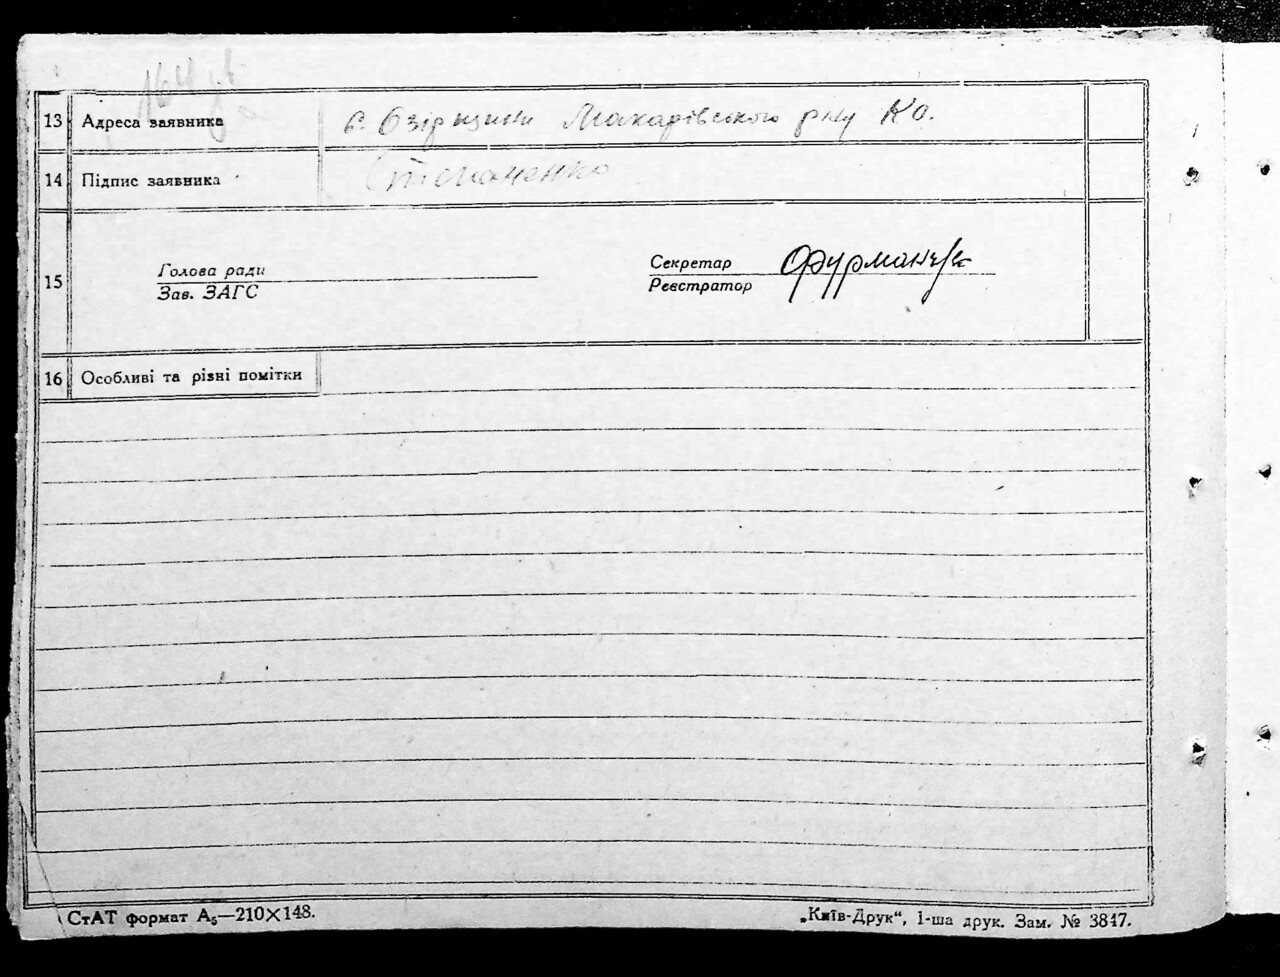 13 Адреса заявника с. Озірщини Макарівського р-ну К.о.
14 Підпис заявника
15 Голова ради
Зав. ЗАГС
Секретар
Реєстратор
16 Особливі та різні помітки
СтАТ формат А₅—210×148.
„Київ-Друк“, 1-ша друк. Зам. № 3847.